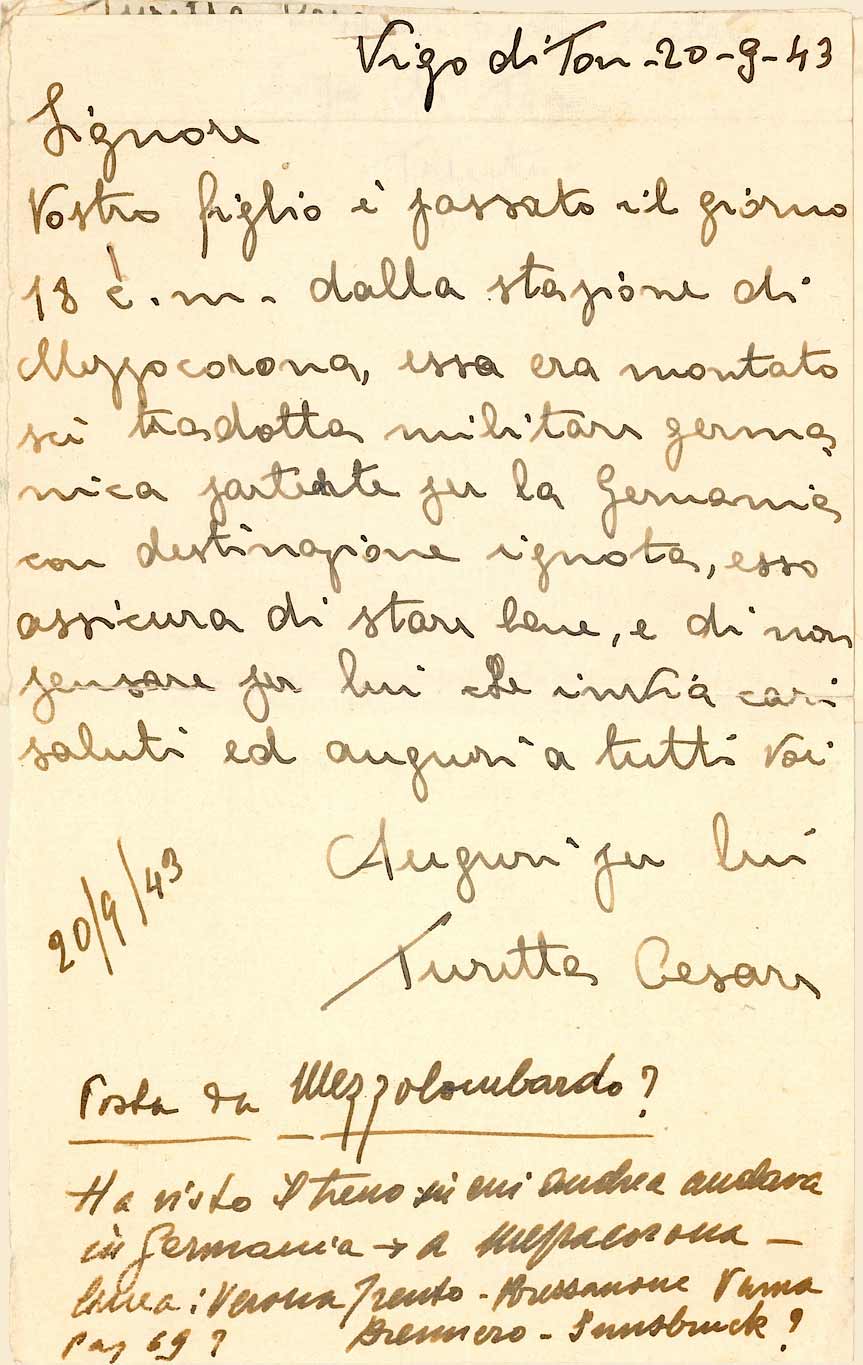 Vigo di Ton - 20-9-43
Signore
Vostro figlio è passato il giorno
18 c.m. dalla stazione di
Mezzocorona, essa era montato
sci tradotta militare germa
nica partente per la Germania
con destinazione ignota, esso
assicura di stare bene, e di non
pensare per lui che invia cari
saluti ed auguri a tutti Voi
Auguri per lui
20/9/43
Turitta Cesare
Posta da Mezzolombardo?
Ha visto il treno in cui Andrea andava
in Germania → a Mezzacorona -
linea: Verona Trento - Bressanone
Brennero - Innsbruck?
Pag 69?